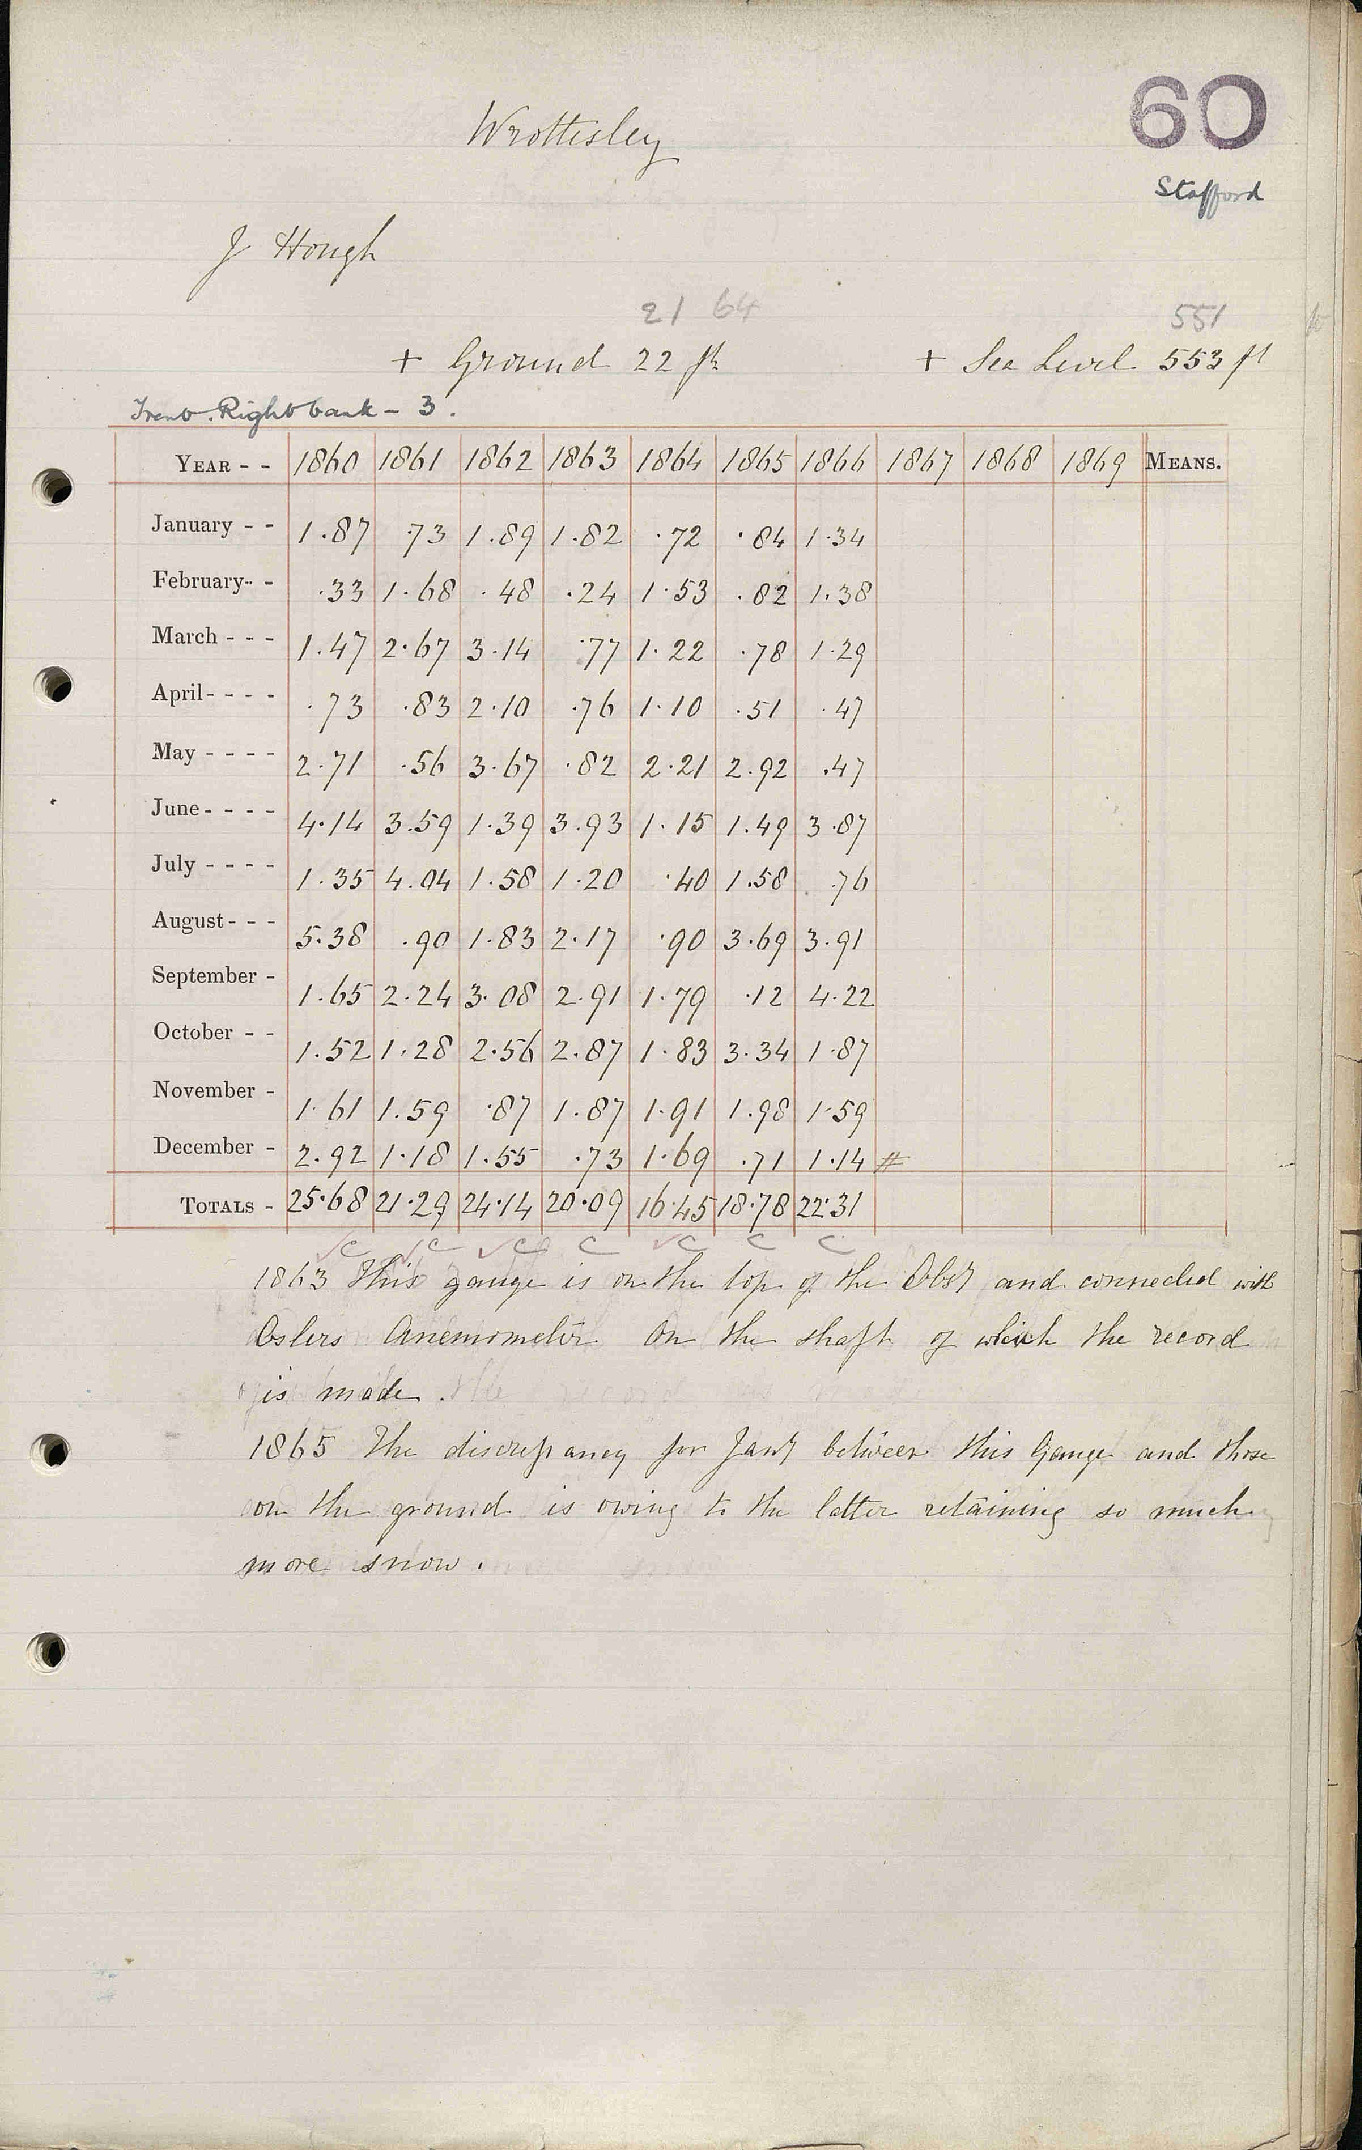 60
Wrottesley
Stafford
J Hough
21 64 551
+ Ground 22 ft + Sea Level 553 ft
Trent. Right bank - 3.
YEAR - - 1860 1861 1862 1863 1864 1865 1866 1867 1868 1869 MEANS.
January - - 1.87 .73 1.89 1.82 .72 .84 1.34
February - - .33 1.68 .48 .24 1.53 .82 1.38
March - - - 1.47 2.67 3.14 .77 1.22 .78 1.29
April - - - - .73 .83 2.10 .76 1.10 .51 .47
May - - - - 2.71 .56 3.67 .82 2.21 2.92 .47
June - - - - 4.14 3.59 1.39 3.93 1.15 1.49 3.87
July - - - - 1.35 4.04 1.58 1.20 .40 1.58 .76
August - - - 5.38 .90 1.83 2.17 .90 3.69 3.91
September - 1.65 2.24 3.08 2.91 1.79 .12 4.22
October - - 1.52 1.28 2.56 2.87 1.83 3.34 1.87
November - 1.61 1.59 .87 1.87 1.91 1.98 1.59
December - 2.92 1.18 1.55 .73 1.69 .71 1.14 #
TOTALS - 25.68 21.29 24.14 20.09 16.45 18.78 22.31
✓c ✓c ✓c c ✓c c c
1863 This gauge is on the top of the Obsy and connected with
Oslers Anemometer on the shaft of which the record
is made.
1865 The discrepancy for Jany between this Gauge and those
on the ground is owing to the latter retaining so much
more snow.